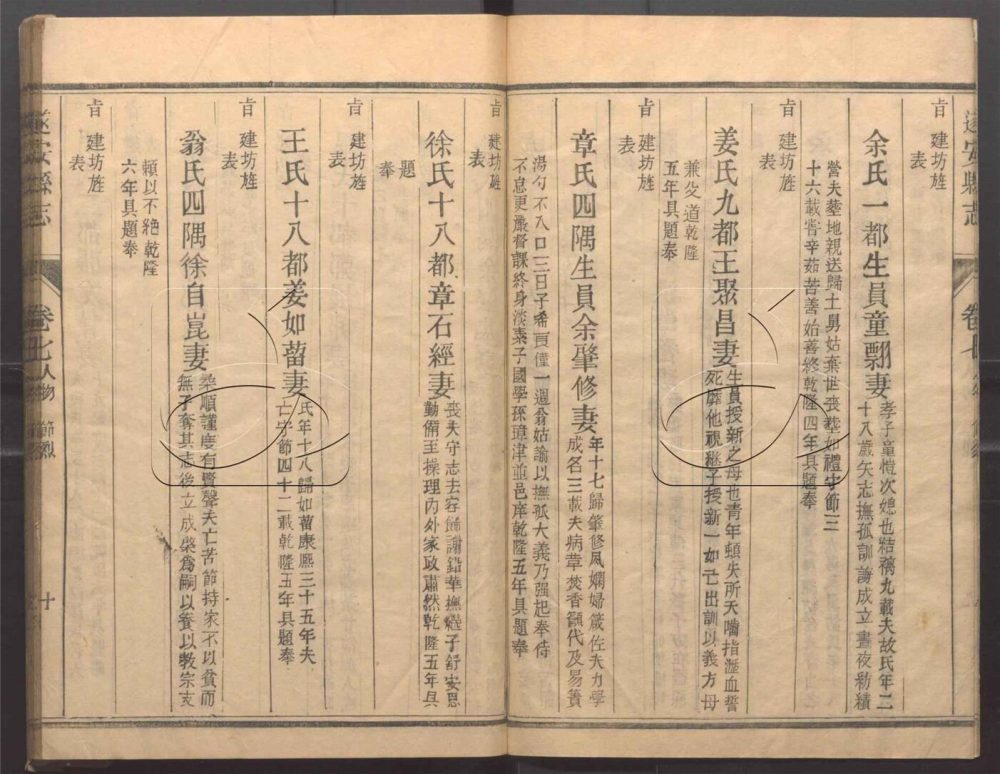 遂安縣志
卷七
旨建坊旌
表
余氏一都生員童翲妻
孝子童愷次媳也結褵九載夫故氏年二
十八歲矢志撫孤訓誨成立晝夜紡績
營夫塟地親送歸土舅姑棄世喪塟如禮守節三
十六載嘗辛茹苦善始善終乾隆四年具題奉
旨建坊旌
表
姜氏九都王聚昌妻
生員授新之母也青年頓失所天嚙指瀝血誓
死靡他視繼子授新一如己出訓以義方母
兼父道乾隆
五年具題奉
旨建坊旌
表
章氏四隅生員余肇修妻
年十七歸肇修夙嫻婦箴佐夫力學
成名三載夫病章焚香籲代及易簀
湯勺不入口三日子希賁僅一週翁姑諭以撫孤大義乃强起奉侍
不怠更嚴督課終身淡素子國學孫璋津並邑庠乾隆五年具題奉
旨建坊旌
表
徐氏十八都章石經妻
喪夫守志去容飾謝鉛華撫孤子舒安恩
勤備至操理內外家政肅然乾隆五年具
題
奉
旨建坊旌
表
王氏十八都姜如葘妻
氏年十八歸如葘康熙三十五年夫
亡守節四十二載乾隆五年具題奉
旨建坊旌
表
翁氏四隅徐自崑妻
柔順謹度有賢聲夫亡苦節持家不以貧而
無子奪其志後立成棨爲嗣以養以教宗支
賴以不絕乾隆
六年具題奉
旨建坊旌
表
遂安縣志
卷七
人物
節烈
十